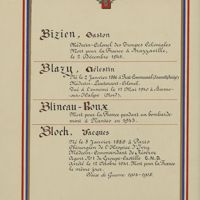 Bizien, Gaston
Médecin-Colonel des Troupes Coloniales
Mort pour la France à Brazzaville,
le 2 Décembre 1943.
Blazy, Célestin
Né le 2 Janvier 1886 à
Médecin-Lieutenant-Colonel.
Tué à l'ennemi le 17 Mai 1940 à
(Nord).
Blineau-Boux
Mort pour la France pendant un bombarde-
ment à Nantes en 1943.
Bloch, Jacques
Né le 8 Janvier 1880 à Paris
Chirurgien de l'Hôpital d'
Médecin-Commandant de Réserve
Agent du Groupe
Arrêté le 12 Octobre 1941. Mort pour la France
le même jour.
Croix de Guerre 1914-1918.